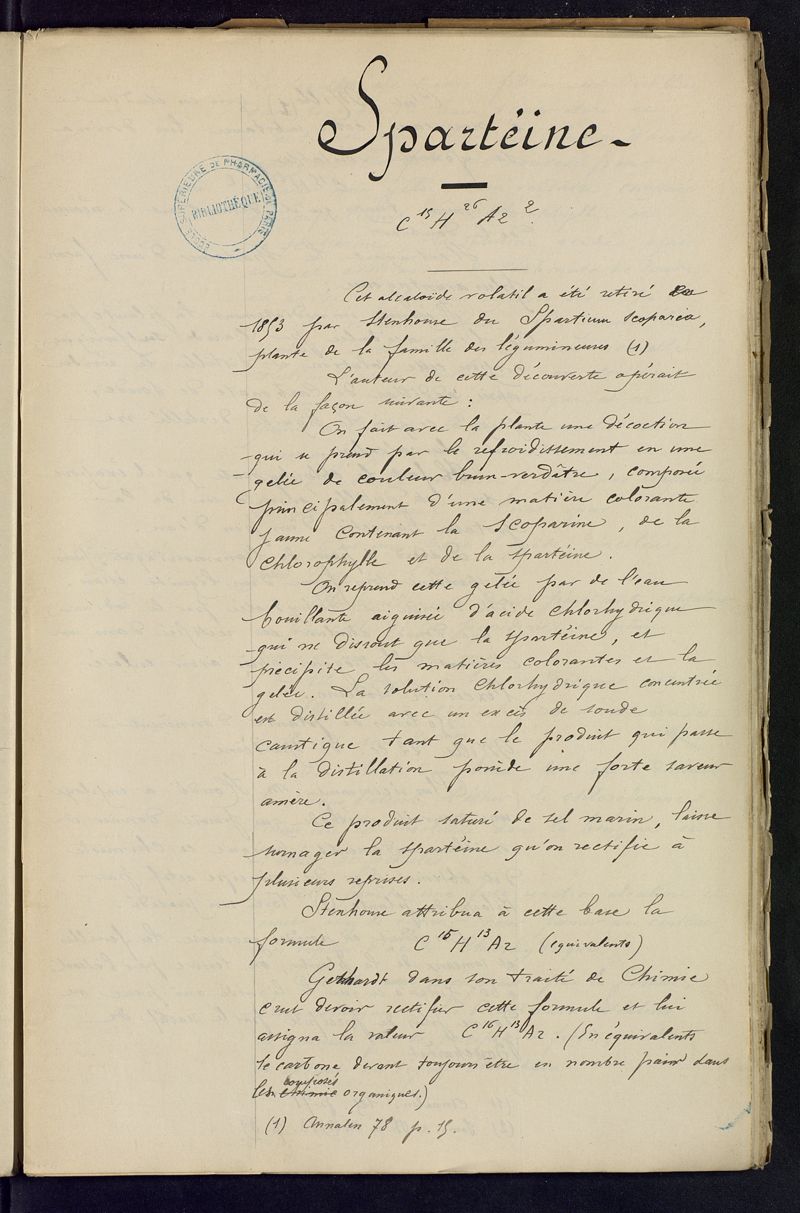 Spartéine -
ÉCOLE SUPÉRIEURE DE PHARMACIE DE PARIS
BIBLIOTHÈQUE
C¹⁵ H²⁶ Az²
Cet alcaloïde volatil a été retiré en
1853 par Stenhouse du Spartium scoparia,
plante de la famille des légumineuses (1)
L'auteur de cette découverte opérait
de la façon suivante :
On fait avec la plante une décoction
qui se prend par le refroidissement en une
gelée de couleur brun-verdâtre, composée
principalement d'une matière colorante
jaune contenant la scoparine, de la
chlorophylle et de la spartéine.
On reprend cette gelée par de l'eau
bouillante aiguisée d'acide chlorhydrique
qui ne dissout que la spartéine, et
précipite les matières colorantes et la
gelée. La solution chlorhydrique concentrée
est distillée avec un excès de soude
caustique tant que le produit qui passe
à la distillation possède une forte saveur
amère.
Ce produit saturé de sel marin, laisse
surnager la spartéine qu'on rectifie à
plusieurs reprises.
Stenhouse attribua à cette base la
formule C¹⁵ H¹³ Az (équivalents)
Gerhardt dans son traité de Chimie
crut devoir rectifier cette formule et lui
assigna la valeur C¹⁶ H¹³ Az. (En équivalents
le carbone devant toujours être en nombre pair dans
les composés organiques.)
(1) Annalen 78 p. 15.